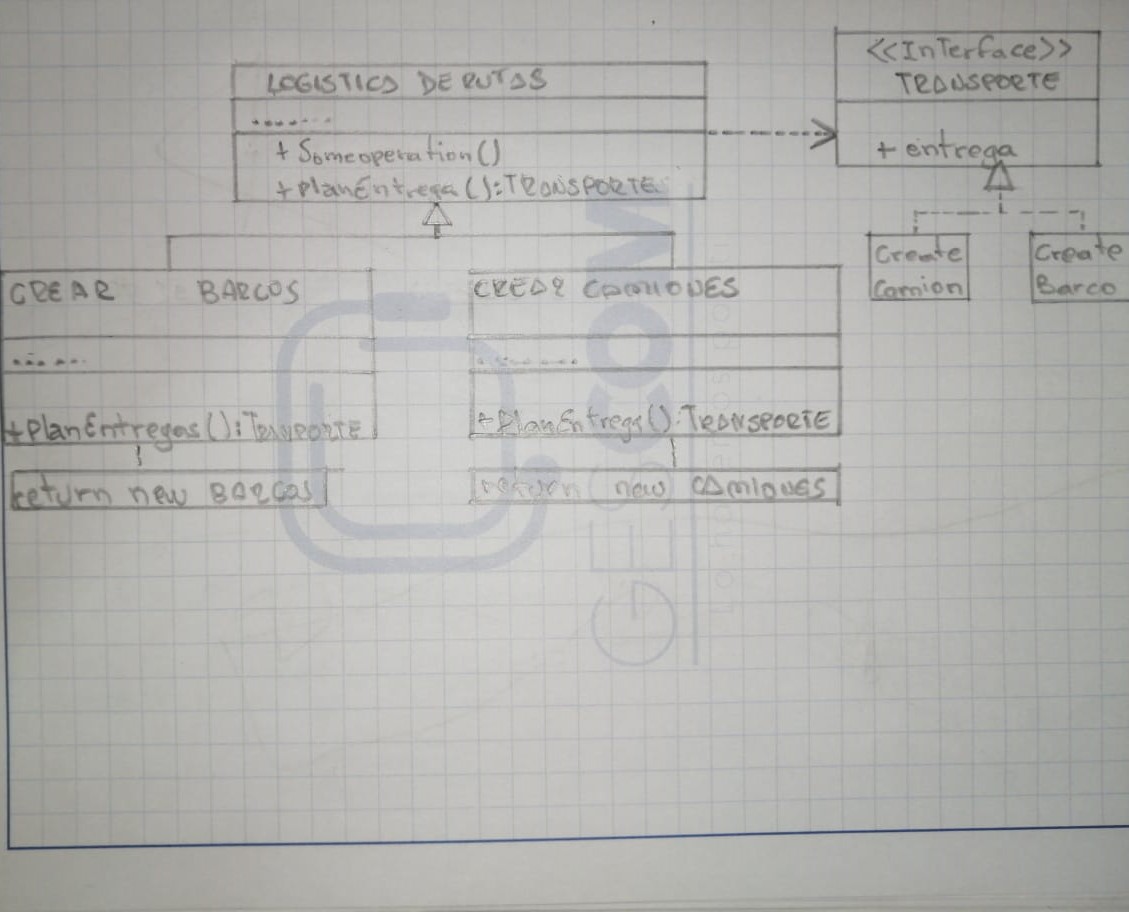 LOGISTICA DE RUTAS
........
+ Someoperation()
+planEntrega():TRANSPORTE
<<InTerface>>
TRANSPORTE
+ entrega
Create
Camion
Create
Barco
CREAR BARCOS
.......
+planEntregas():
return new BARCOS
CREAR CAMIONES
.........
+PlanEntrega():TRANSPORTE
return new CAMIONES
GESCOM